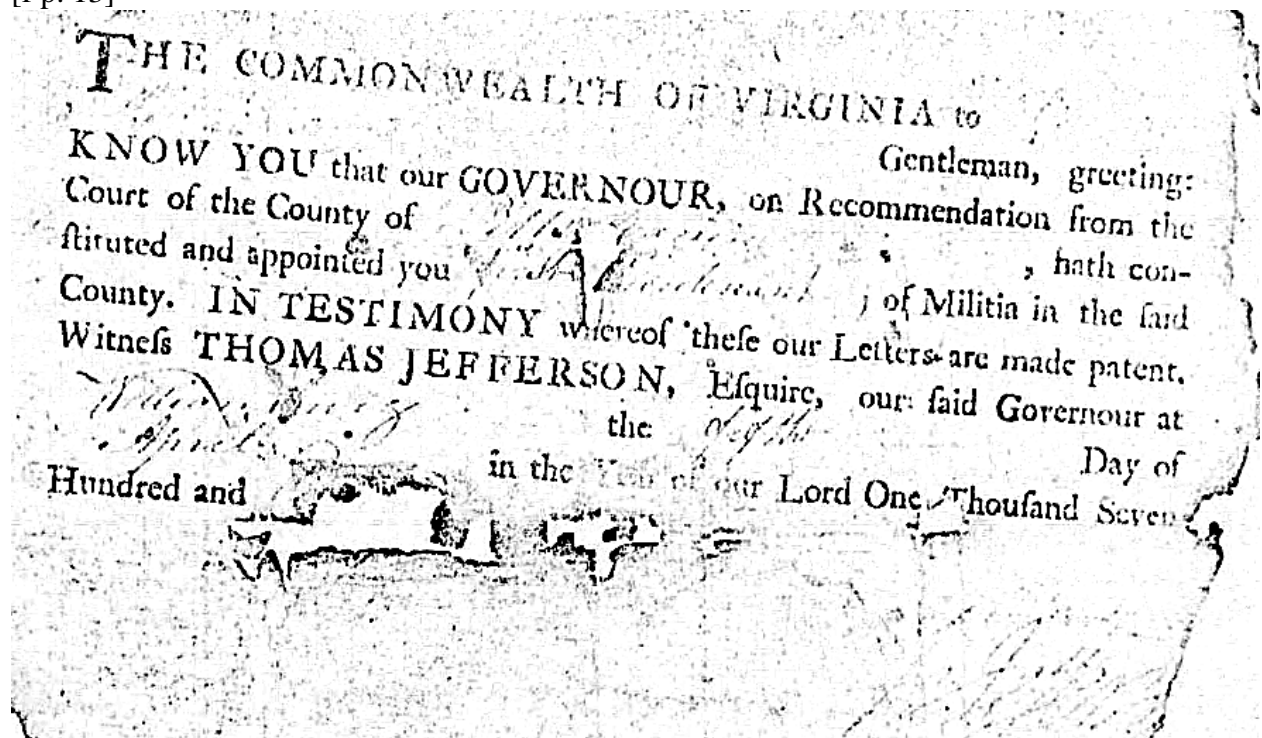 THE COMMONWEALTH OF VIRGINIA to
Gentleman, greeting:
KNOW YOU that our GOVERNOUR, on Recommendation from the
Court of the County of , hath con-
ſtituted and appointed you Lieutenant , of Militia in the ſaid
County. IN TESTIMONY whereof theſe our Letters are made patent.
Witneſs THOMAS JEFFERSON, Eſquire, our ſaid Governour at
the Day of
in the Year of our Lord One Thouſand Seven
Hundred and